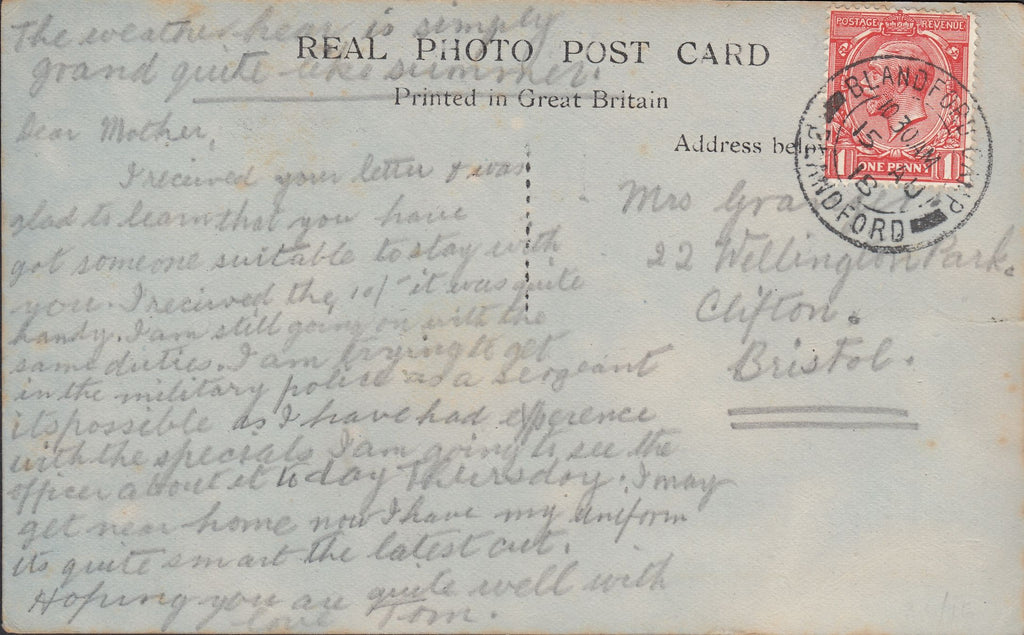 The weather hear is simply
grand quite like summer.
REAL PHOTO POST CARD
Printed in Great Britain
Address bel
POSTAGE REVENUE
ONE PENNY
1 1
BLANDFORD CAMP
10.30 AM
15 AU
18
BLANDFORD
Dear Mother,
I received your letter & was
glad to learn that you have
got someone suitable to stay with
you. I recieved the 10/- it was quite
handy. I am still going on with the
same duties. I am trying to get
in the military police as a sergeant
its possible as I have had experence
with the specials I am going to see the
officer about it to day Thursday. I may
get near home now I have my uniform
its quite smart the latest cut.
Hoping you are quite well with
love Tom.
Mrs
22 Wellington Park.
Clifton.
Bristol.